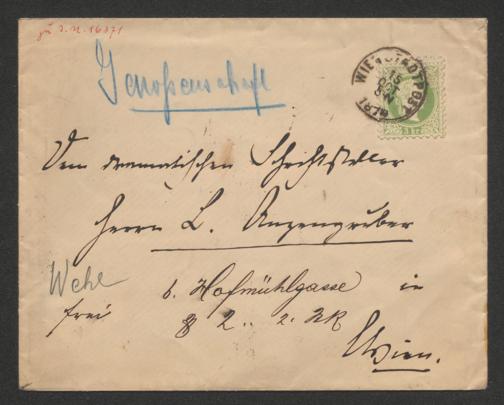 zu I. N. 16371
Genossenschaft
WIEN STADTPOST
15
3 kr
Dem dramatischen Schriftsteller
Herrn L. Anzengruber
Wehe
6. Hofmühlgasse in
frei
2. 2.
Wien.